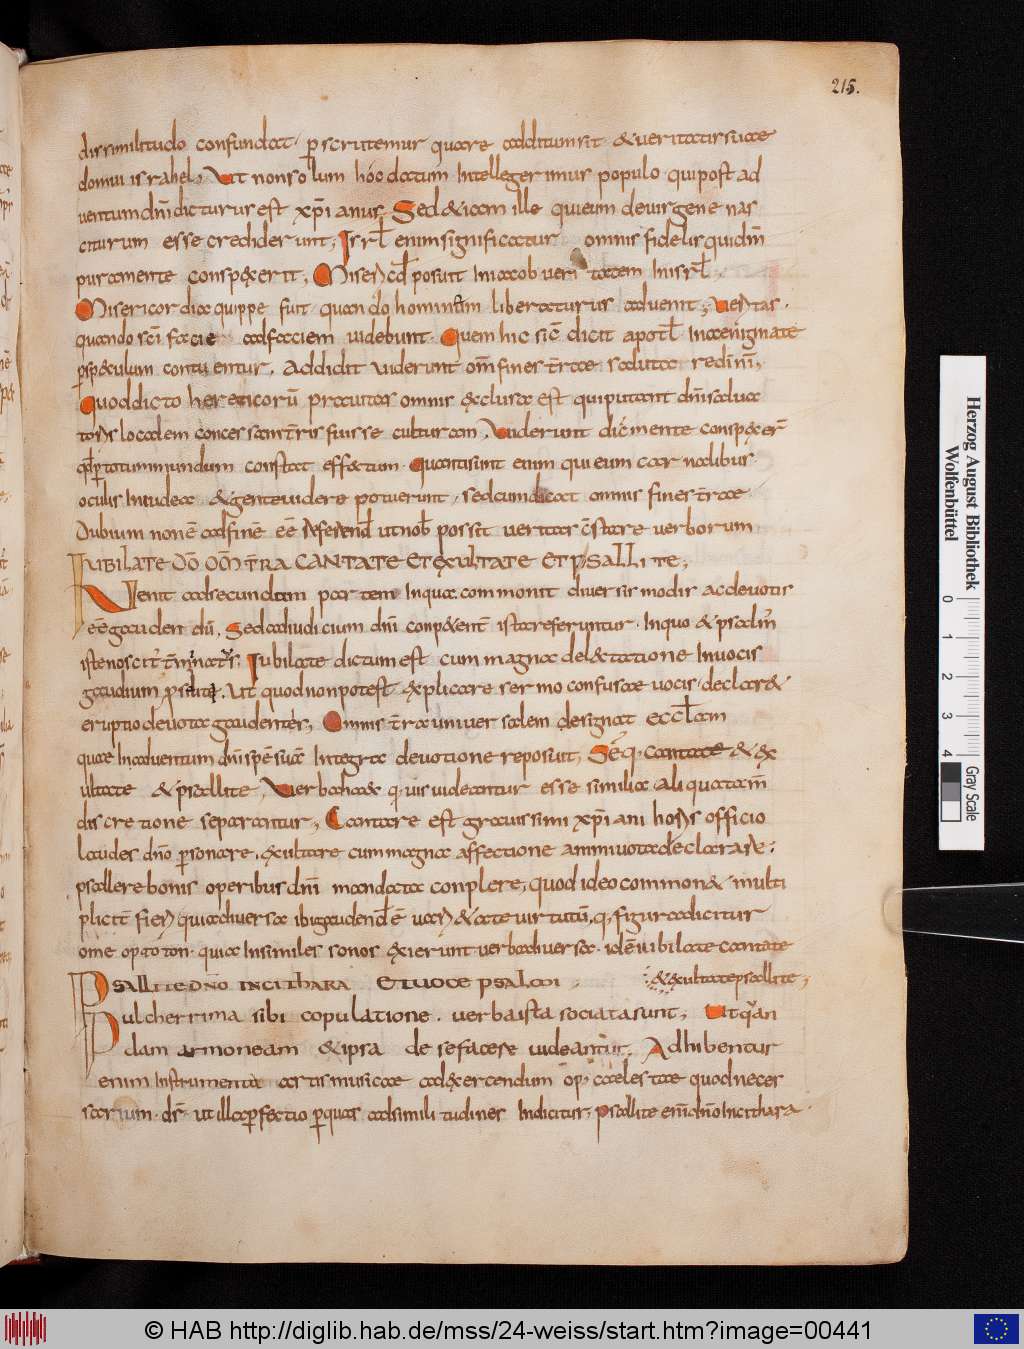 215.
dissimilitudo confundat. p scrutemur quare additum sit. & ueritatis suae
domui israhel, Ut non solum hoc datum Intellegerimus populo. qui post ad
uentum dn̄i dicturus est xp̄ianus. Sed & iam ille qui eum de uirgene nas
citurum esse crediderunt, Isrl̄ enim significatur omnis fidelis qui dn̄m
pura mente conspexerit, posuit In iacob ueritatem In isrl̄.
Misericordiae quippe fuit. quando hominem liberaturus aduenit,
quando sc̄i facie ad faciem uidebunt. Quem hic sic dicit apostl̄ In aenigmate
speculum contuentur. Addidit uiderunt om̄ fines t̄rae salutae
Quod dicto hereticorū prauitas omnis exclusa est qui putant dn̄i salua
localem fuisse culturam. Uiderunt mente
totum mundum constat effectum. Quanti sunt enim qui eum carnalibus
oculis In iudea & gente uidere potuerunt. sed cum dicat omnis fines t̄rae
Dubium non ē ad finē eē possit ueritas c̄stare uerborum
IUBILATE DŌ OM̄ T̄RA CANTATE ET EXULTATE ET PSALLITE,
Uenit ad secundam partem In qua commonit diuersis modis ac deuotis
eē gauden Sed ad iudicium dn̄i ista referuntur. In quo & psalm̄
iste Iubilate dictum est cum magna delectatione In uocis
gaudium Ut quod non potest explicare sermo confusae uocis. declar&
eruptio deuota gaudentes, Omnis t̄ra uniuersalem designat eccl̄am
quae In aduentum dn̄i spē suā Integra deuotione reposuit, Seq. cantate & ex
ultate & psallite, Uerba haec q. uis uideantur esse similia Ali quatam̄
discretione separantur, Cantare est grauissimi xp̄iani officio
Laudes dn̄o personare. exultare cum magna affectione animi uota declarare;
psallere bonis operibus dn̄i mandata conplere, quod ideo common& multi
pliciter quia diuersae uirtutū, q. figura dicitur
ome op to ton. quia In similes sonos exierunt uerba diuersa. idē iubilate cantate
PSALLITE DN̄O IN CITHARA ET UOCE PSALMI & exultate psallite,
Pulcherrima sibi copulatione. uerba ista sociata sunt, Ut
dam armoneam & ipsa de se facere uideantur. Adhibentur
enim Instrumenta artis musicae ad exercendum op, caelestae quod neces
sarium. ut illa perfectio per quas ad similitudines Indicitur, psallite enī dn̄o In cithara.
Herzog August Bibliothek
Wolfenbüttel
0 1 2 3 4
Gray Scale
© HAB http://diglib.hab.de/mss/24-weiss/start.htm?image=00441